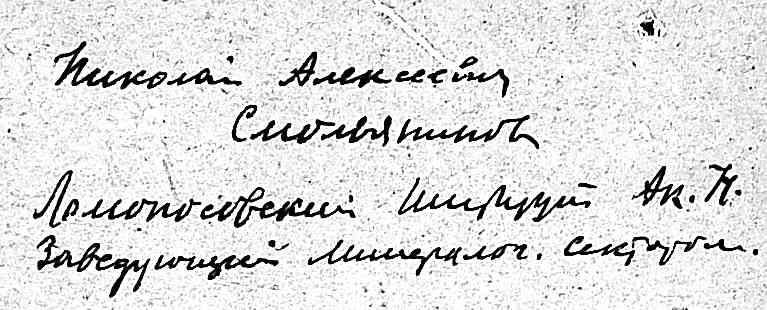 Николай Алексеевич
Смольянинов
Ломоносовский Институт Ак. Н.
Заведующий Минералог. сектором.